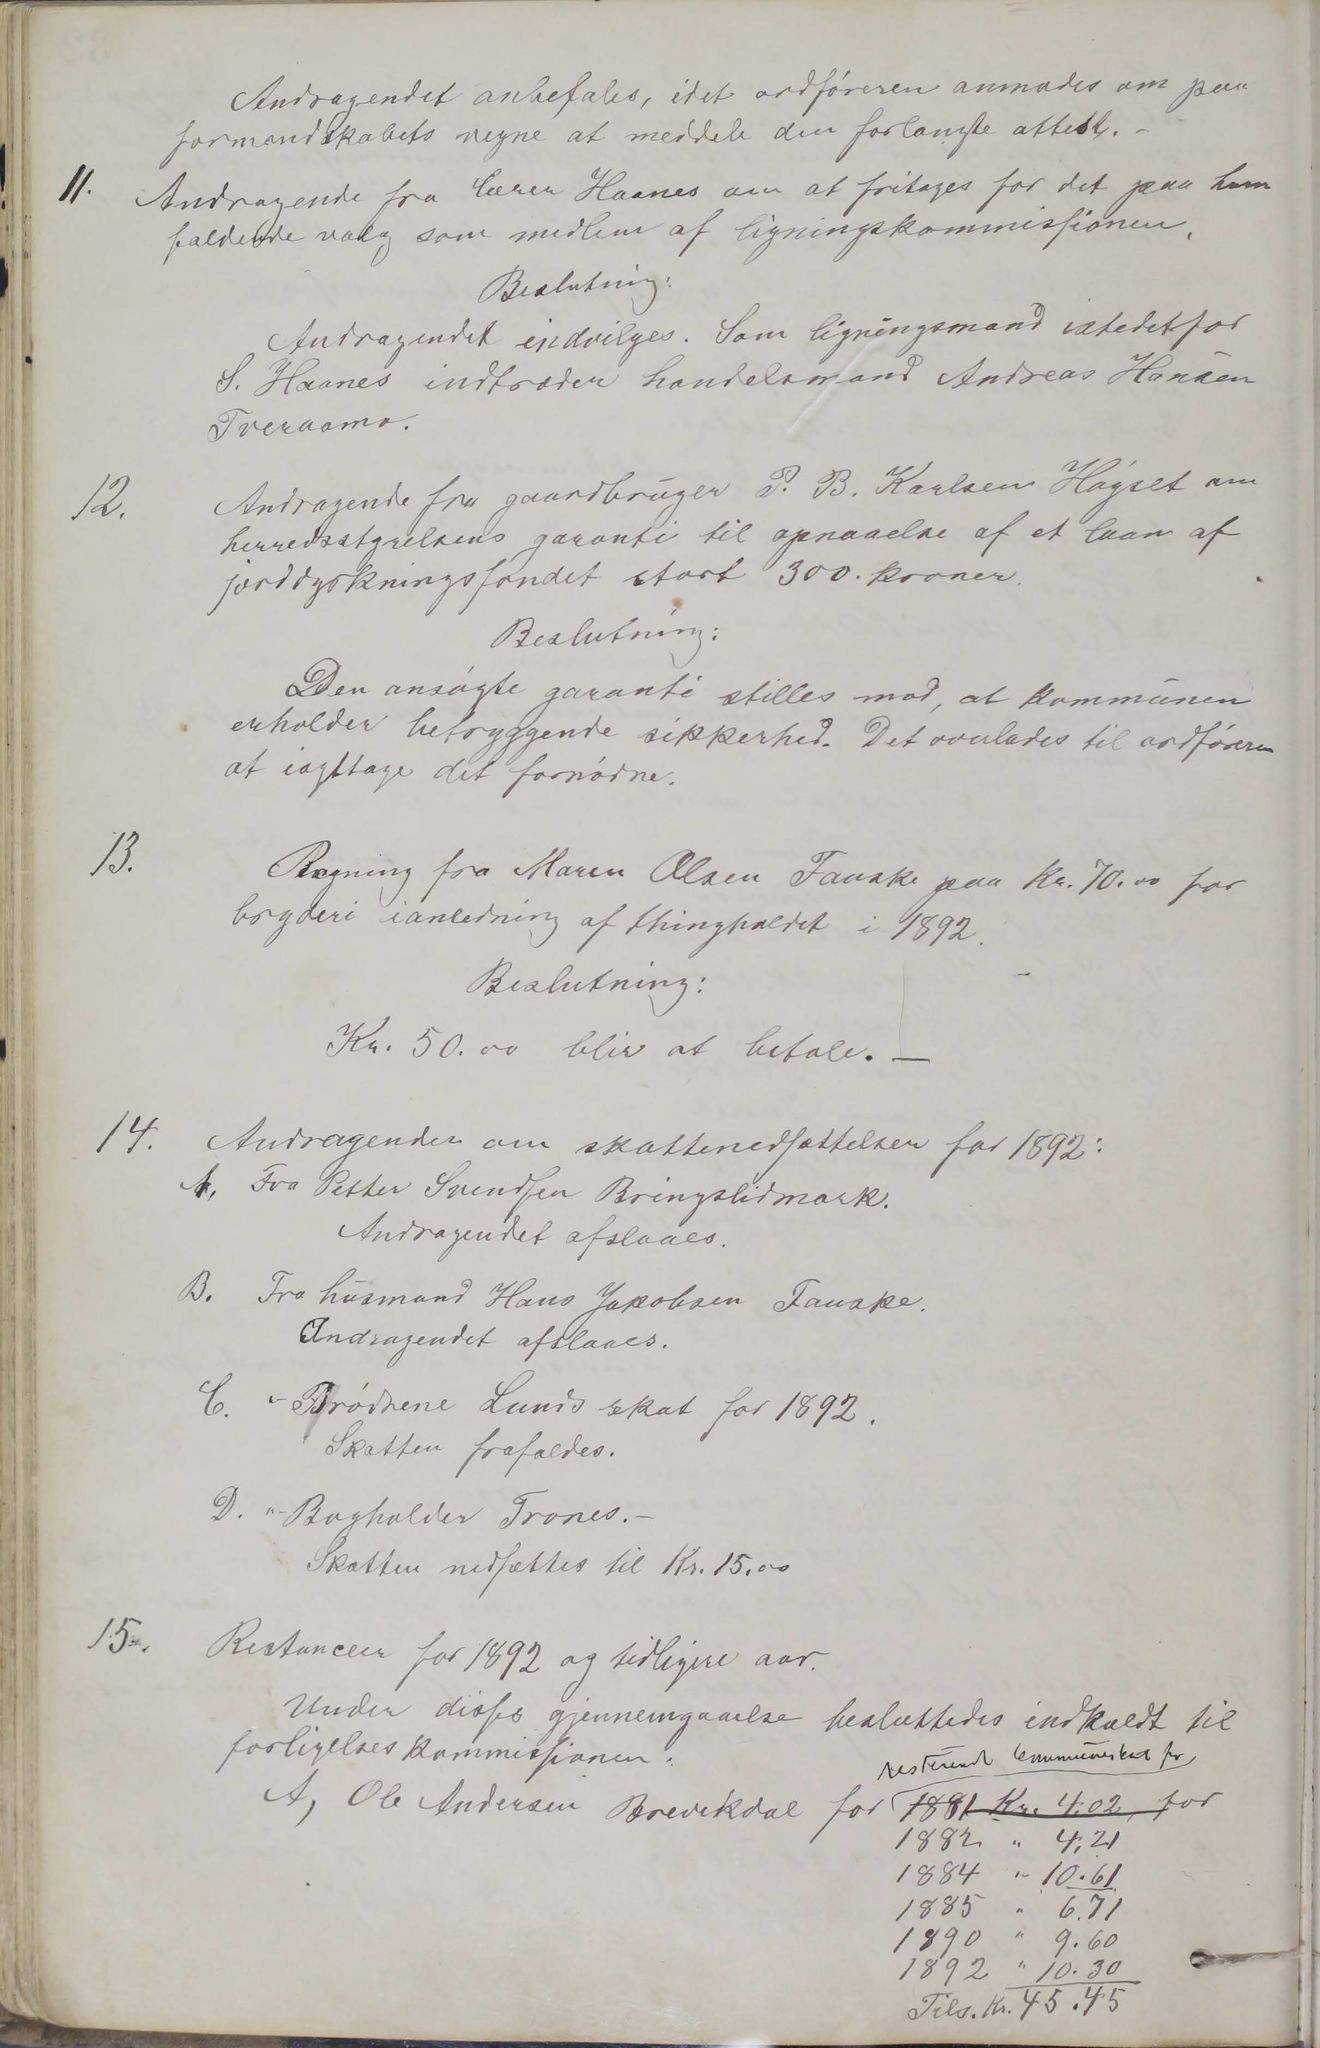 Andragendet anbefales, idet ordføreren anmodes om paa
formandskabets vegne at meddele den forlangte attest. -
11. Andragende fra lærer Haanes om at fritages for det paa ham
faldende valg som medlem af ligningskommissionen.
Beslutning:
Andragendet indvilges. Som ligningsmand istedetfor
S. Haanes indtræder handelsmand Andreas Hansen
Tveraamo.
12. Andragende fra gaardbruger P. B. Karlsen Høgset om
herredsstyrelsens garanti til opnaaelse af et laan af
jorddyrkningsfondet stort 300. kroner.
Beslutning:
Den ansøgte garanti stilles mod, at kommunen
erholder betryggende sikkerhed. Det overlades til ordføreren
at iagttage det fornødne.
13. Regning fra Maren Olsen Fauske paa Kr. 70.00 for
bryderi ianledning af thingholdet i 1892.
Beslutning:
Kr. 50.00 blir at betale. —
14. Andragender om skattenedsættelser for 1892:
A, Fra Petter Svendsen Bringslidmark.
Andragendet afslaaes.
B. Fra husmand Hans Jakobsen Fauske.
Andragendet afslaaes.
C. " Brødrene Lunds skat for 1892.
Skatten frafaldes.
D. " Bogholder Trones. -
Skatten nedsættes til Kr. 15.00
15. Restancer for 1892 og tidligere aar.
Under disses gjennemgaaelse besluttedes indkaldt til
forligelseskommissionen:
resterende kommuneskat for
A, Ole Andersen Brevikdal for 1881 Kr. 4.02, for
1882 " 4.21
1884 " 10.61
1885 " 6.71
1890 " 9.60
1892 " 10.30
Tils. Kr. 45.45